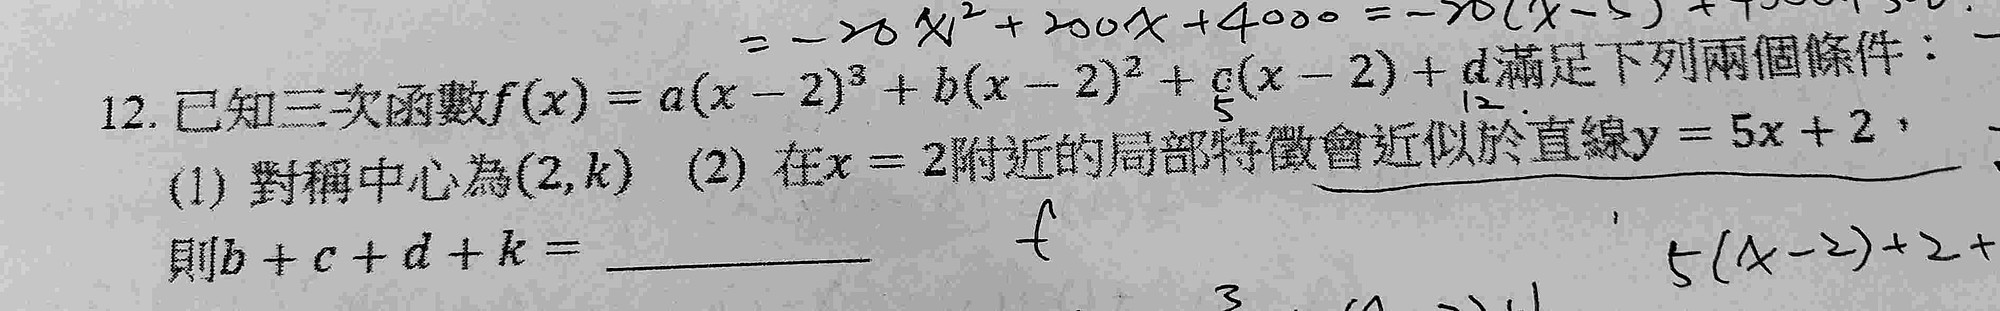 = -20x² + 200x + 4000 = -20(x-5)
12. 已知三次函數f(x) = a(x − 2)³ + b(x − 2)² + c(x − 2) + d滿足下列兩個條件：
5 12
(1) 對稱中心為(2, k) (2) 在x = 2附近的局部特徵會近似於直線y = 5x + 2，
則b + c + d + k = ________
f
5(x-2)+2+
3